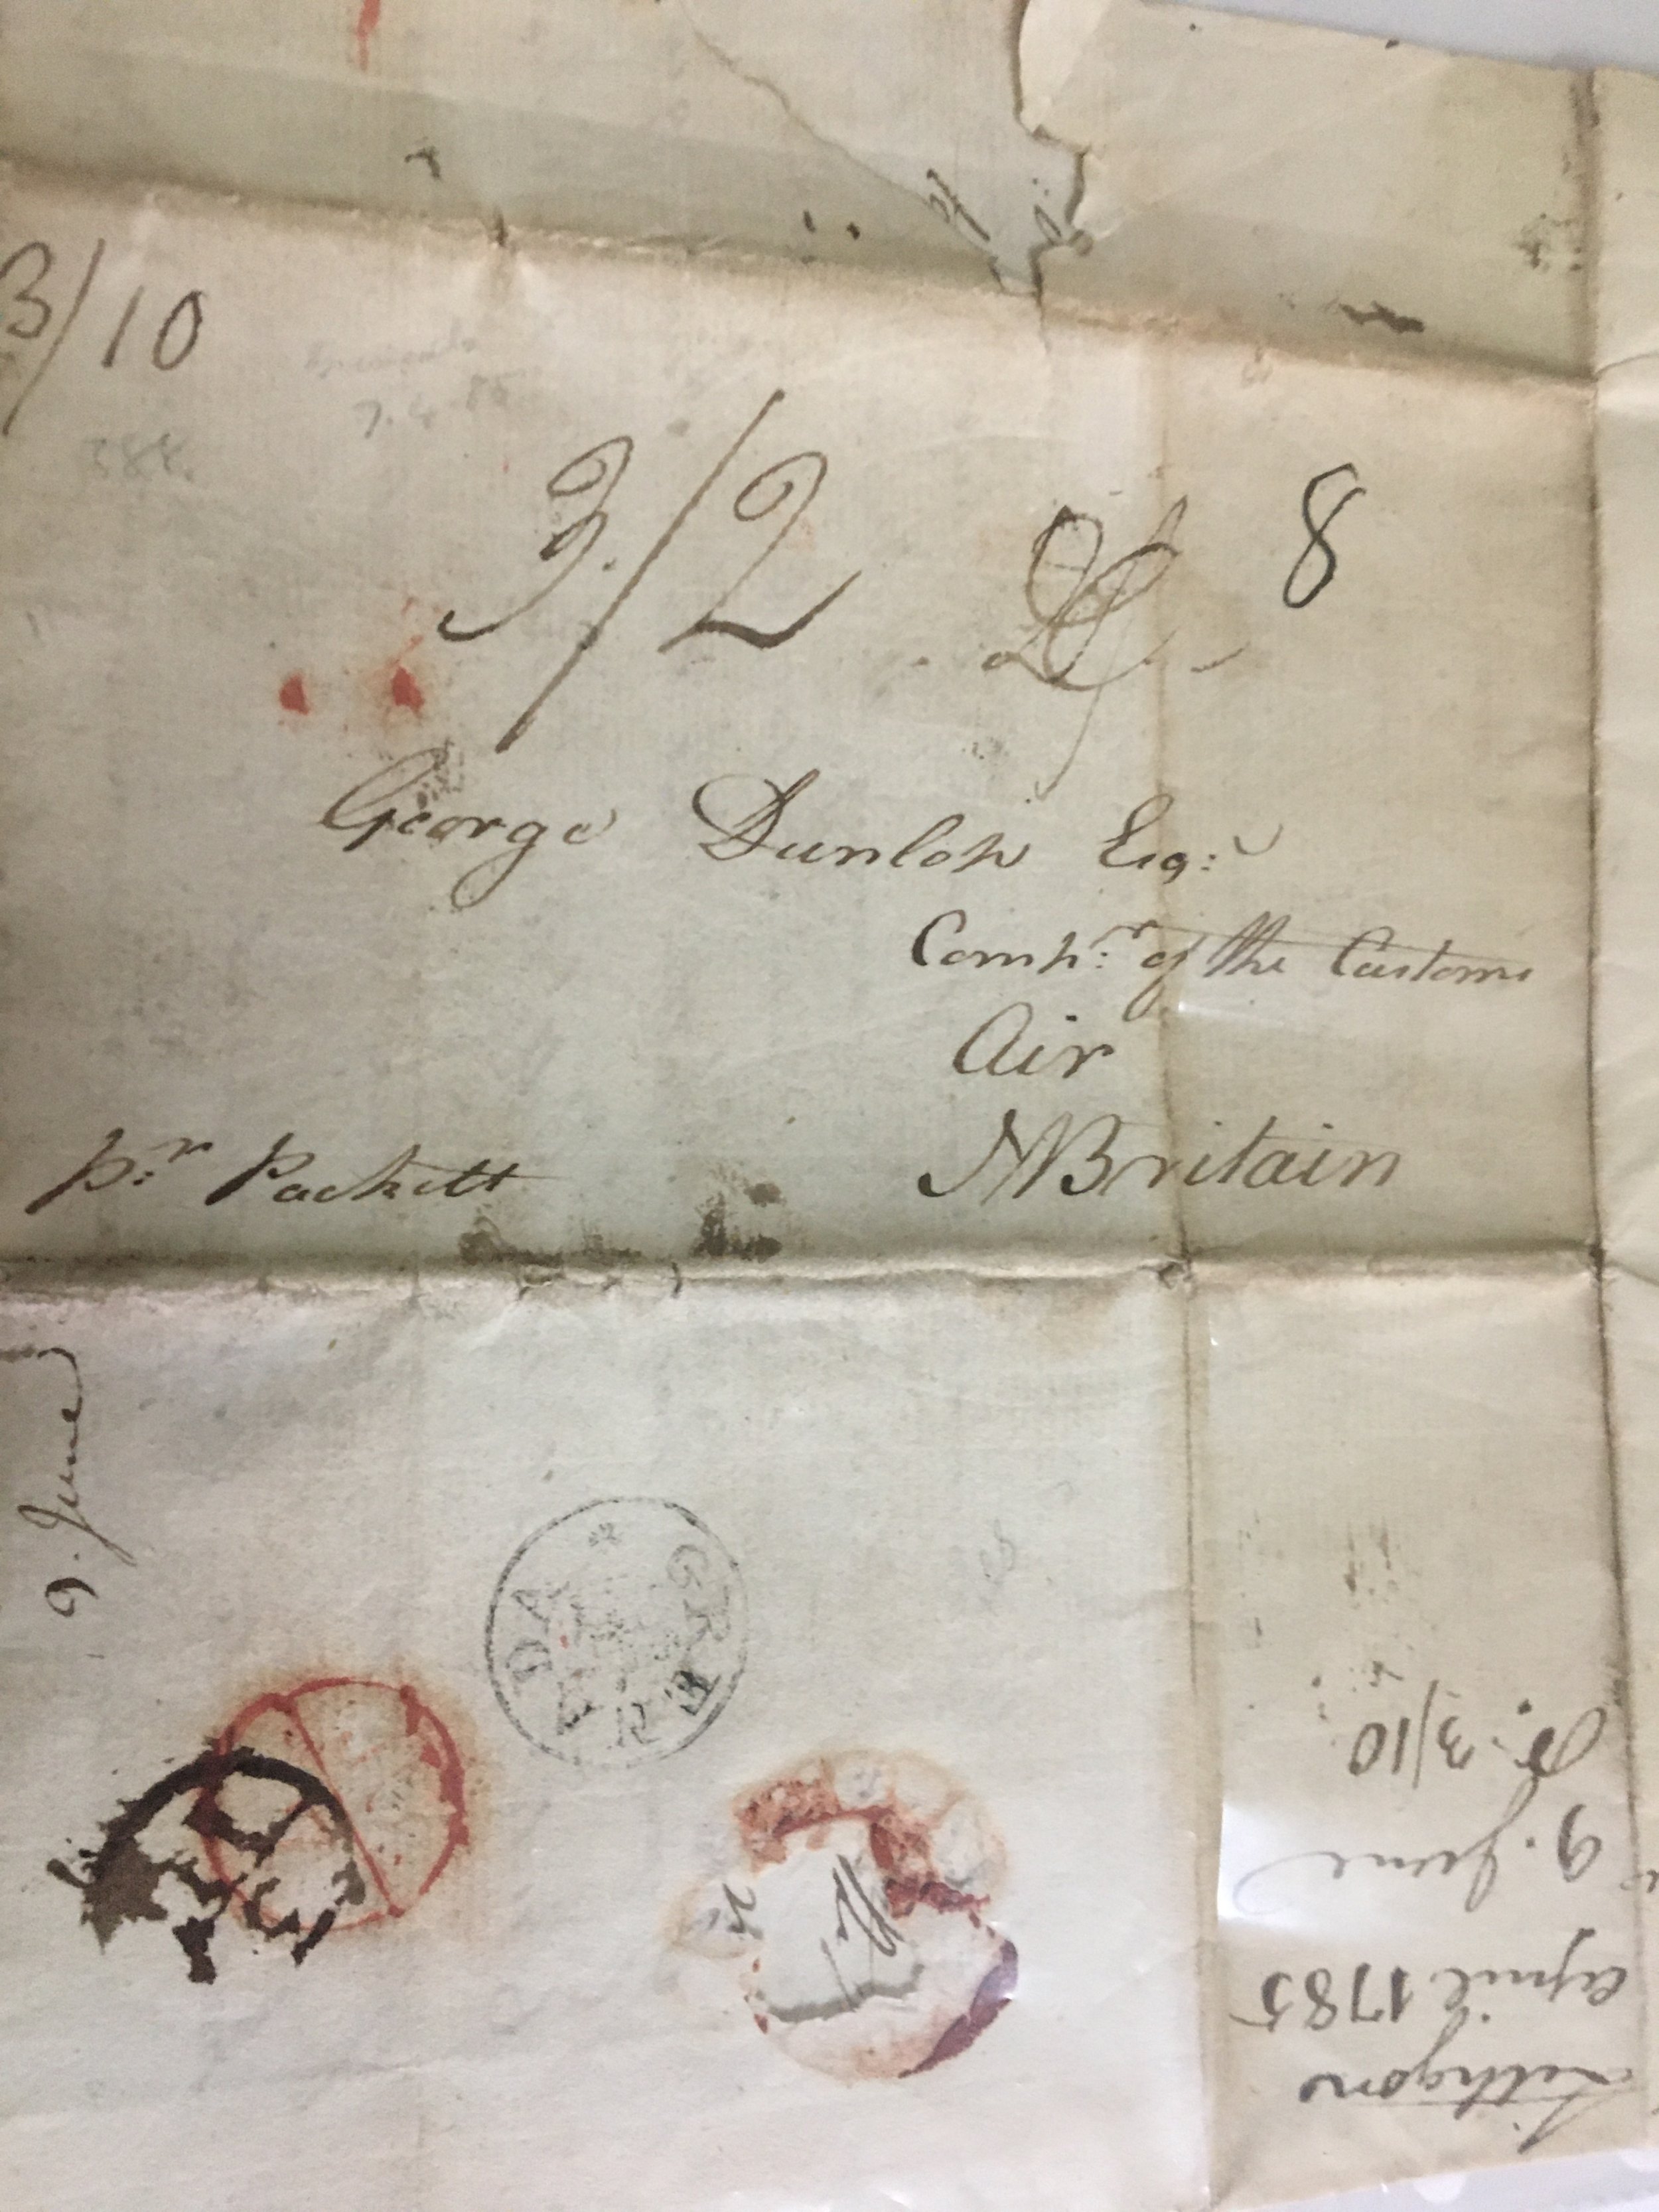 3/10
7.4.85
3/2
8
George Dunlop Esq:
Comp:r of the Customs
Air
NBritain
p:r Packett
9. June
GRENADA
Lithgow
April 1785
9. June
3/10